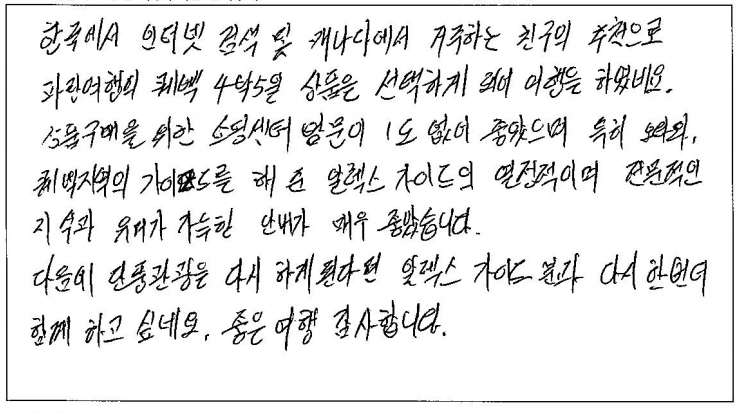 한국에서 인터넷 검색 및 캐나다에서 거주하는 친구의 추천으로
파란여행의 퀘백 4박5일 상품을 선택하게 되어 여행을 하였네요.
상품구매을 위한 쇼핑센터 방문이 1도 없어 좋았으며 특히 오타와,
퀘백지역의 가이드를 해 준 알렉스 가이드의 열정적이며 전문적인
지식과 유머가 가득한 안내가 매우 좋았습니다.
다음에 단풍관광을 다시 하게된다면 알렉스 가이드 분과 다시 한번더
함께 하고 싶네요. 좋은 여행 감사합니다.